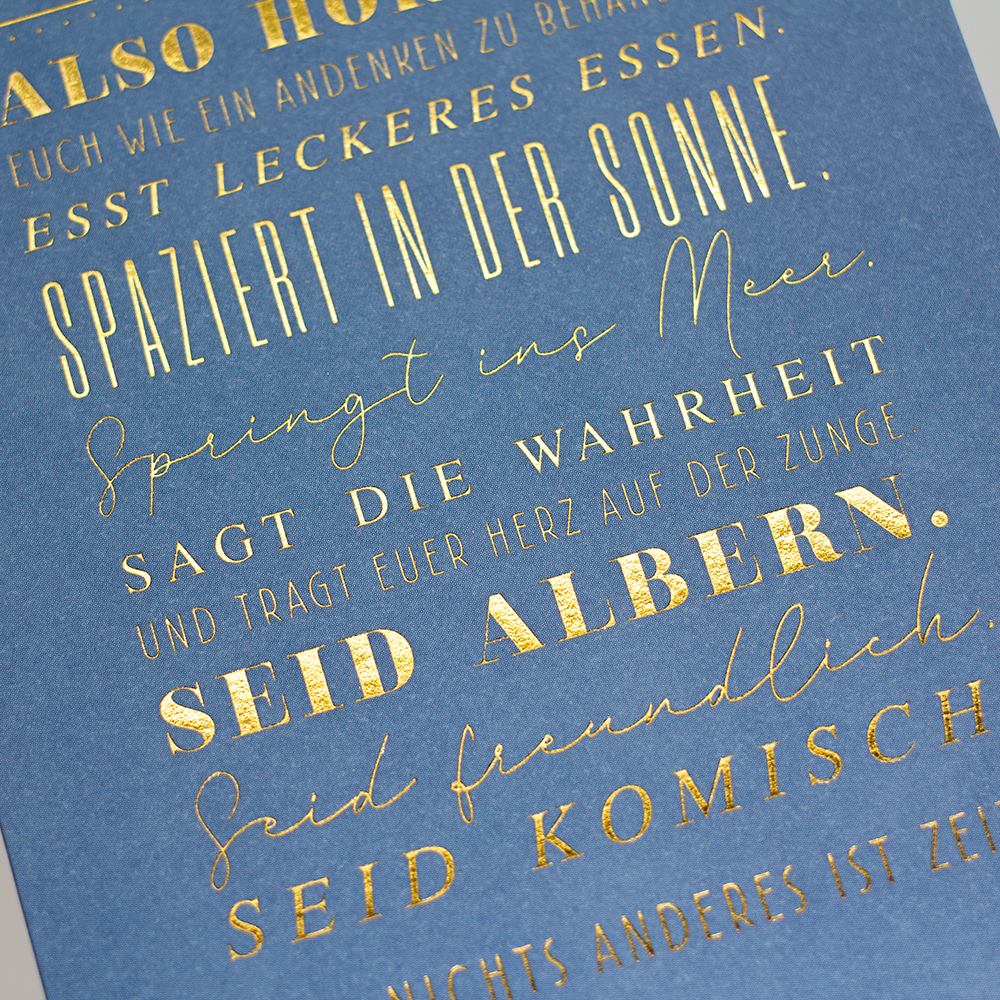 ALSO
EUCH WIE EIN ANDENKEN ZU
ESST LECKERES ESSEN.
SPAZIERT IN DER SONNE.
Springt ins Meer.
SAGT DIE WAHRHEIT
UND TRAGT EUER HERZ AUF DER ZUNGE.
SEID ALBERN.
Seid freundlich.
SEID KOMISCH
NICHTS ANDERES IST